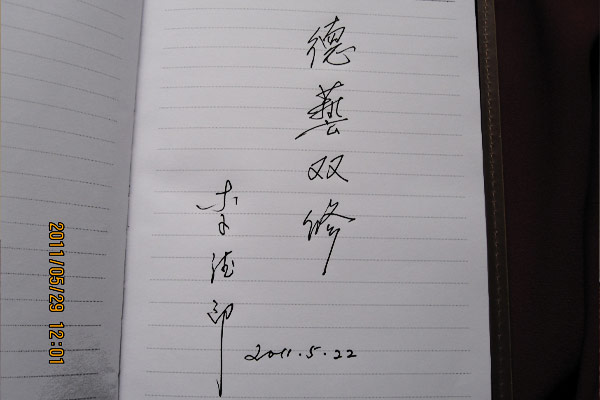 德藝双修
李德印
2011.5.22
2011/05/29 12:01